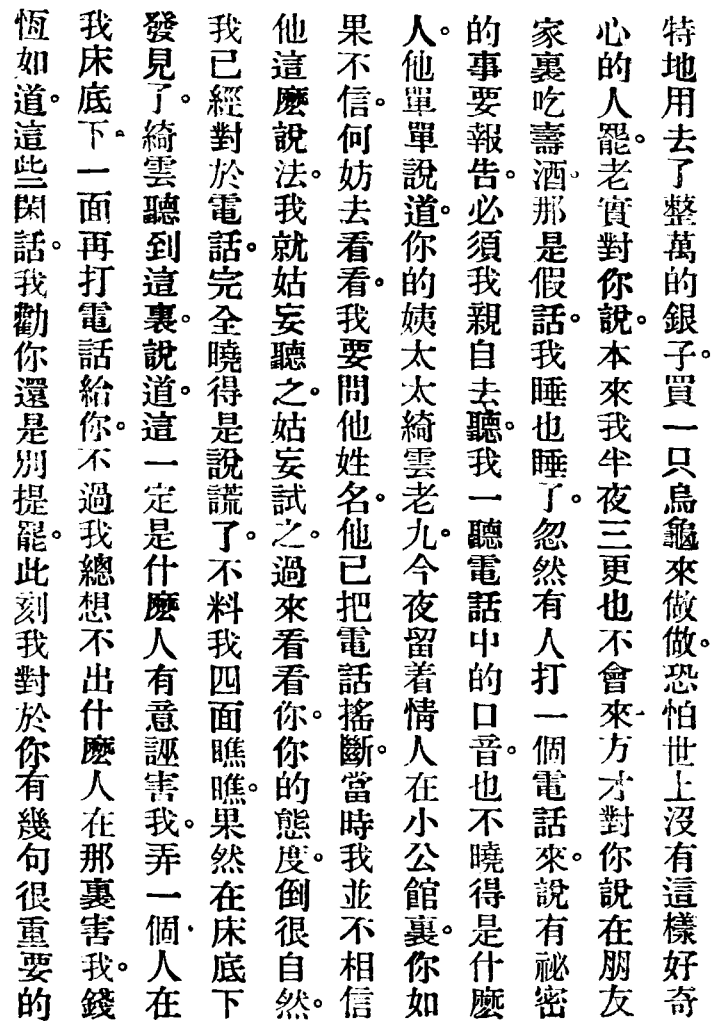 特地用去了整萬的銀子。買一只烏龜來做做。恐怕世上沒有這樣好奇
心的人罷。老實對你說。本來我半夜三更也不會來。方才對你說在朋友
家裏吃壽酒。那是假話。我睡也睡了。忽然有人打一個電話來。說有祕密
的事要報告。必須我親自去聽。我一聽電話中的口音。也不曉得是什麼
人。他單單說道。你的姨太太綺雲老九。今夜留着情人在小公館裏。你如
果不信。何妨去看看。我要問他姓名。他已把電話搖斷。當時我並不相信
他這麼說法。我就姑妄聽之。姑妄試之。過來看看你。你的態度。倒很自然。
我已經對於電話。完全曉得是說謊了。不料我四面瞧瞧。果然在床底下
發見了。綺雲聽到這裏。說道。這一定是什麼人有意誣害我。弄一個人在
我床底下。一面再打電話給你。不過我總想不出什麼人在那裏害我。錢
恆如道。這些閑話。我勸你還是別提罷。此刻我對於你有幾句很重要的